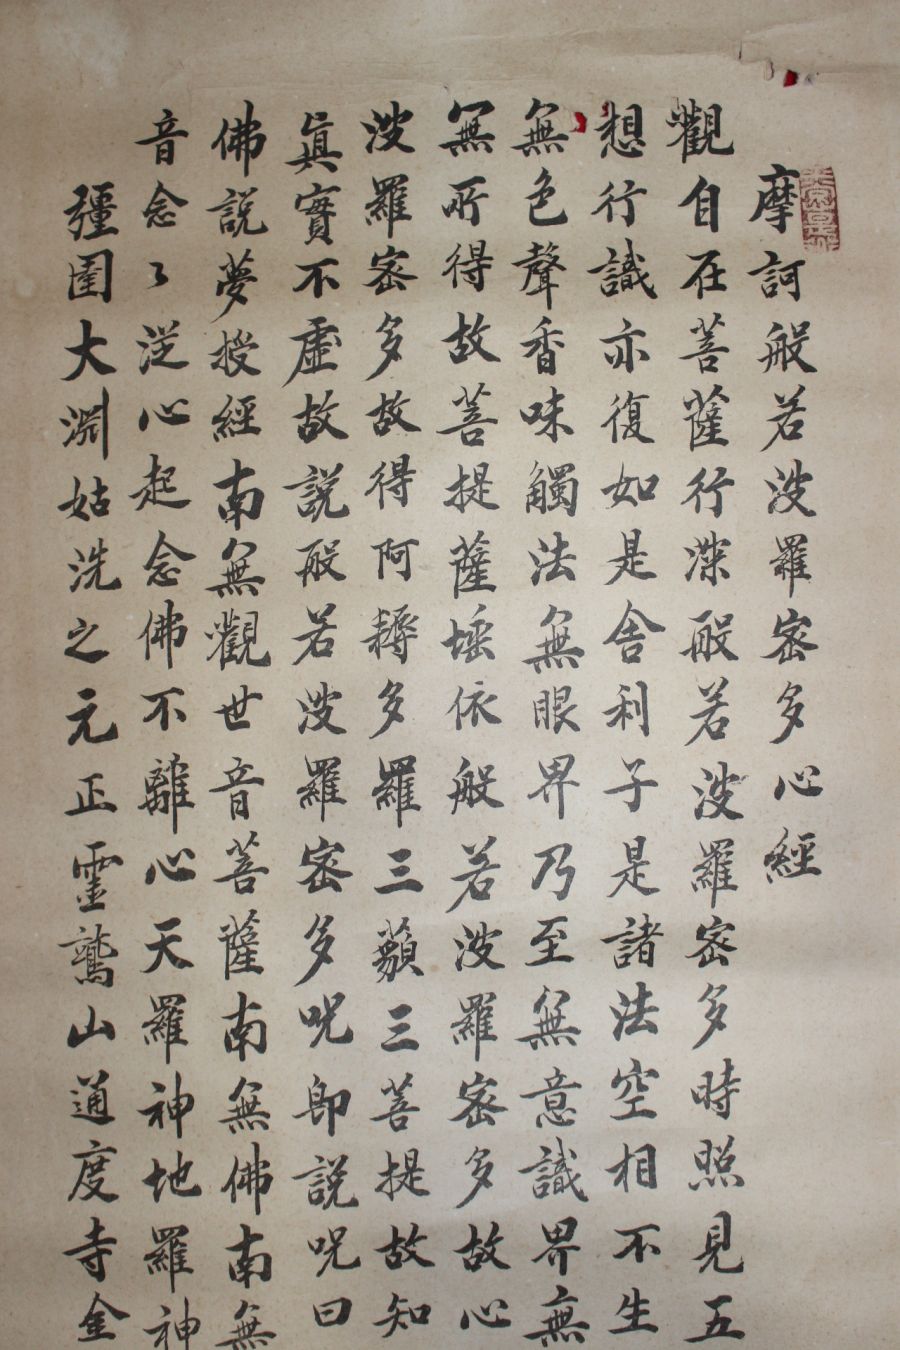 摩訶般若波羅密多心經
觀自在菩薩行深般若波羅密多時照見五
想行識亦復如是舍利子是諸法空相不生
無色聲香味觸法無眼界乃至無意識界無
無所得故菩提薩埵依般若波羅密多故心
波羅密多故得阿耨多羅三藐三菩提故知
眞實不虛故說般若波羅密多呪卽說呪曰
佛說夢授經南無觀世音菩薩南無佛南無
音念々從心起念佛不離心天羅神地羅神
彊圉大淵姑洗之元正靈鷲山通度寺金